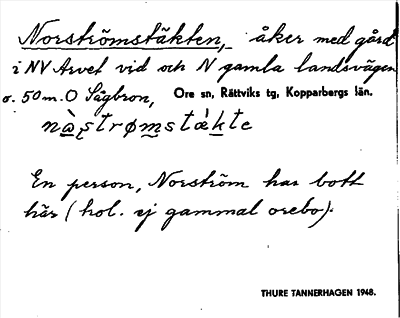 Norströmstäkten, åker med gård
i NV Arvet vid och N gamla landsvägen
o. 50 m. O Sågbron, Ore sn, Rättviks tg, Kopparbergs län.
En person, Norström har bott
här (hol. ej gammal orebo).
THURE TANNERHAGEN 1948.